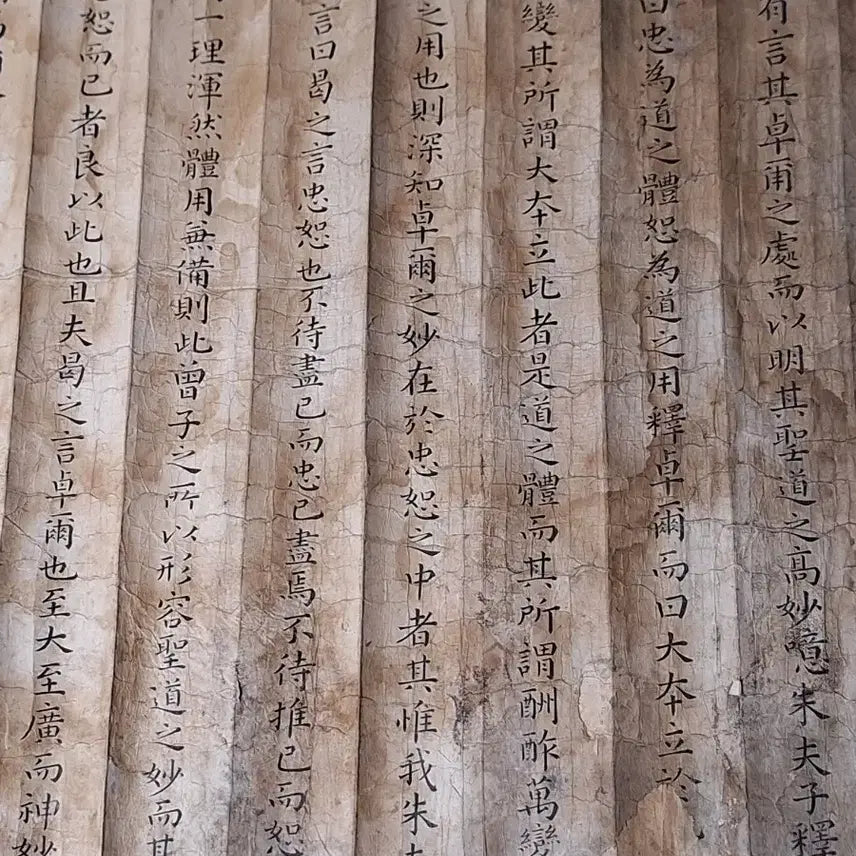 有言其卓爾之處而以明其聖道之高妙噫朱夫子釋
曰忠為道之體恕為道之用釋卓爾而曰大夲立於
變其所謂大夲立此者是道之體而其所謂酬酢萬變
之用也則深知卓爾之妙在於忠恕之中者其惟我朱
言曰曷之言忠恕也不待盡己而忠已盡焉不待推己而恕
一理渾然體用兼備則此曾子之所以形容聖道之妙而其
恕而已者良以此也且夫曷之言卓爾也至大至廣而神妙